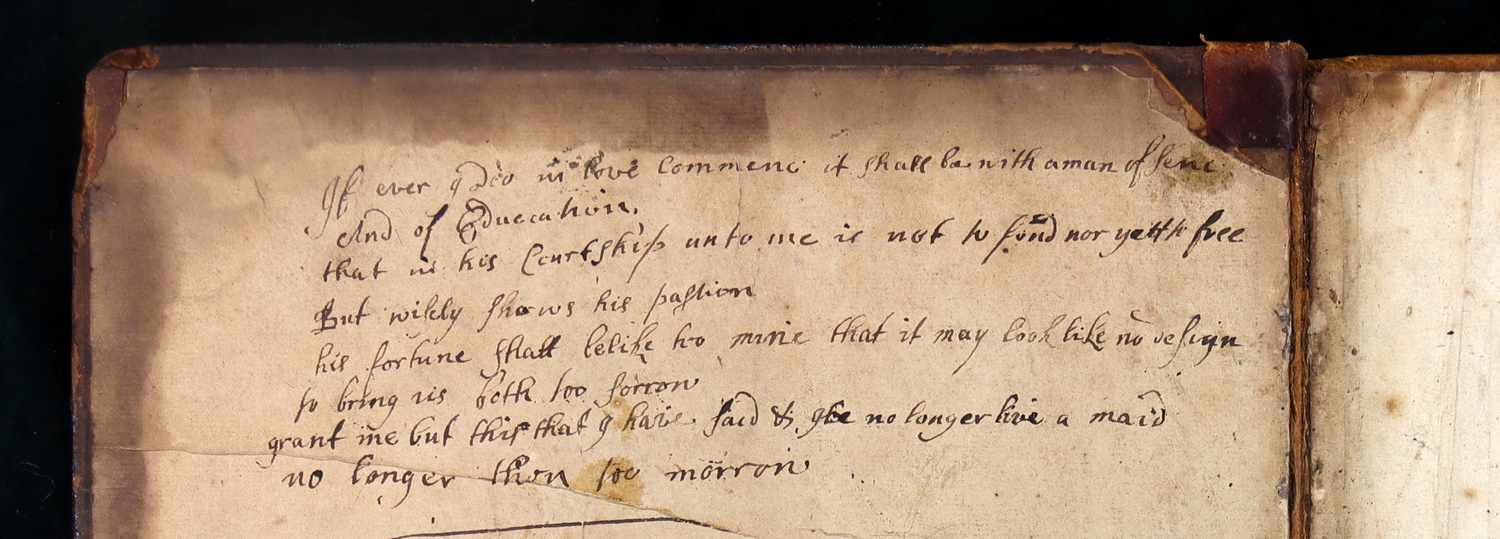 If ever I do in love Commenc it shall be with a man of senc
And of Educcation.
that in his Curtship unto me is not to fond nor yett to free
But wisely shows his passion
his fortune shall belike too mine that it may look like no design
to bring us both too sorrow
grant me but this that I have said & Ile no longer live a maid
no longer then too morrow